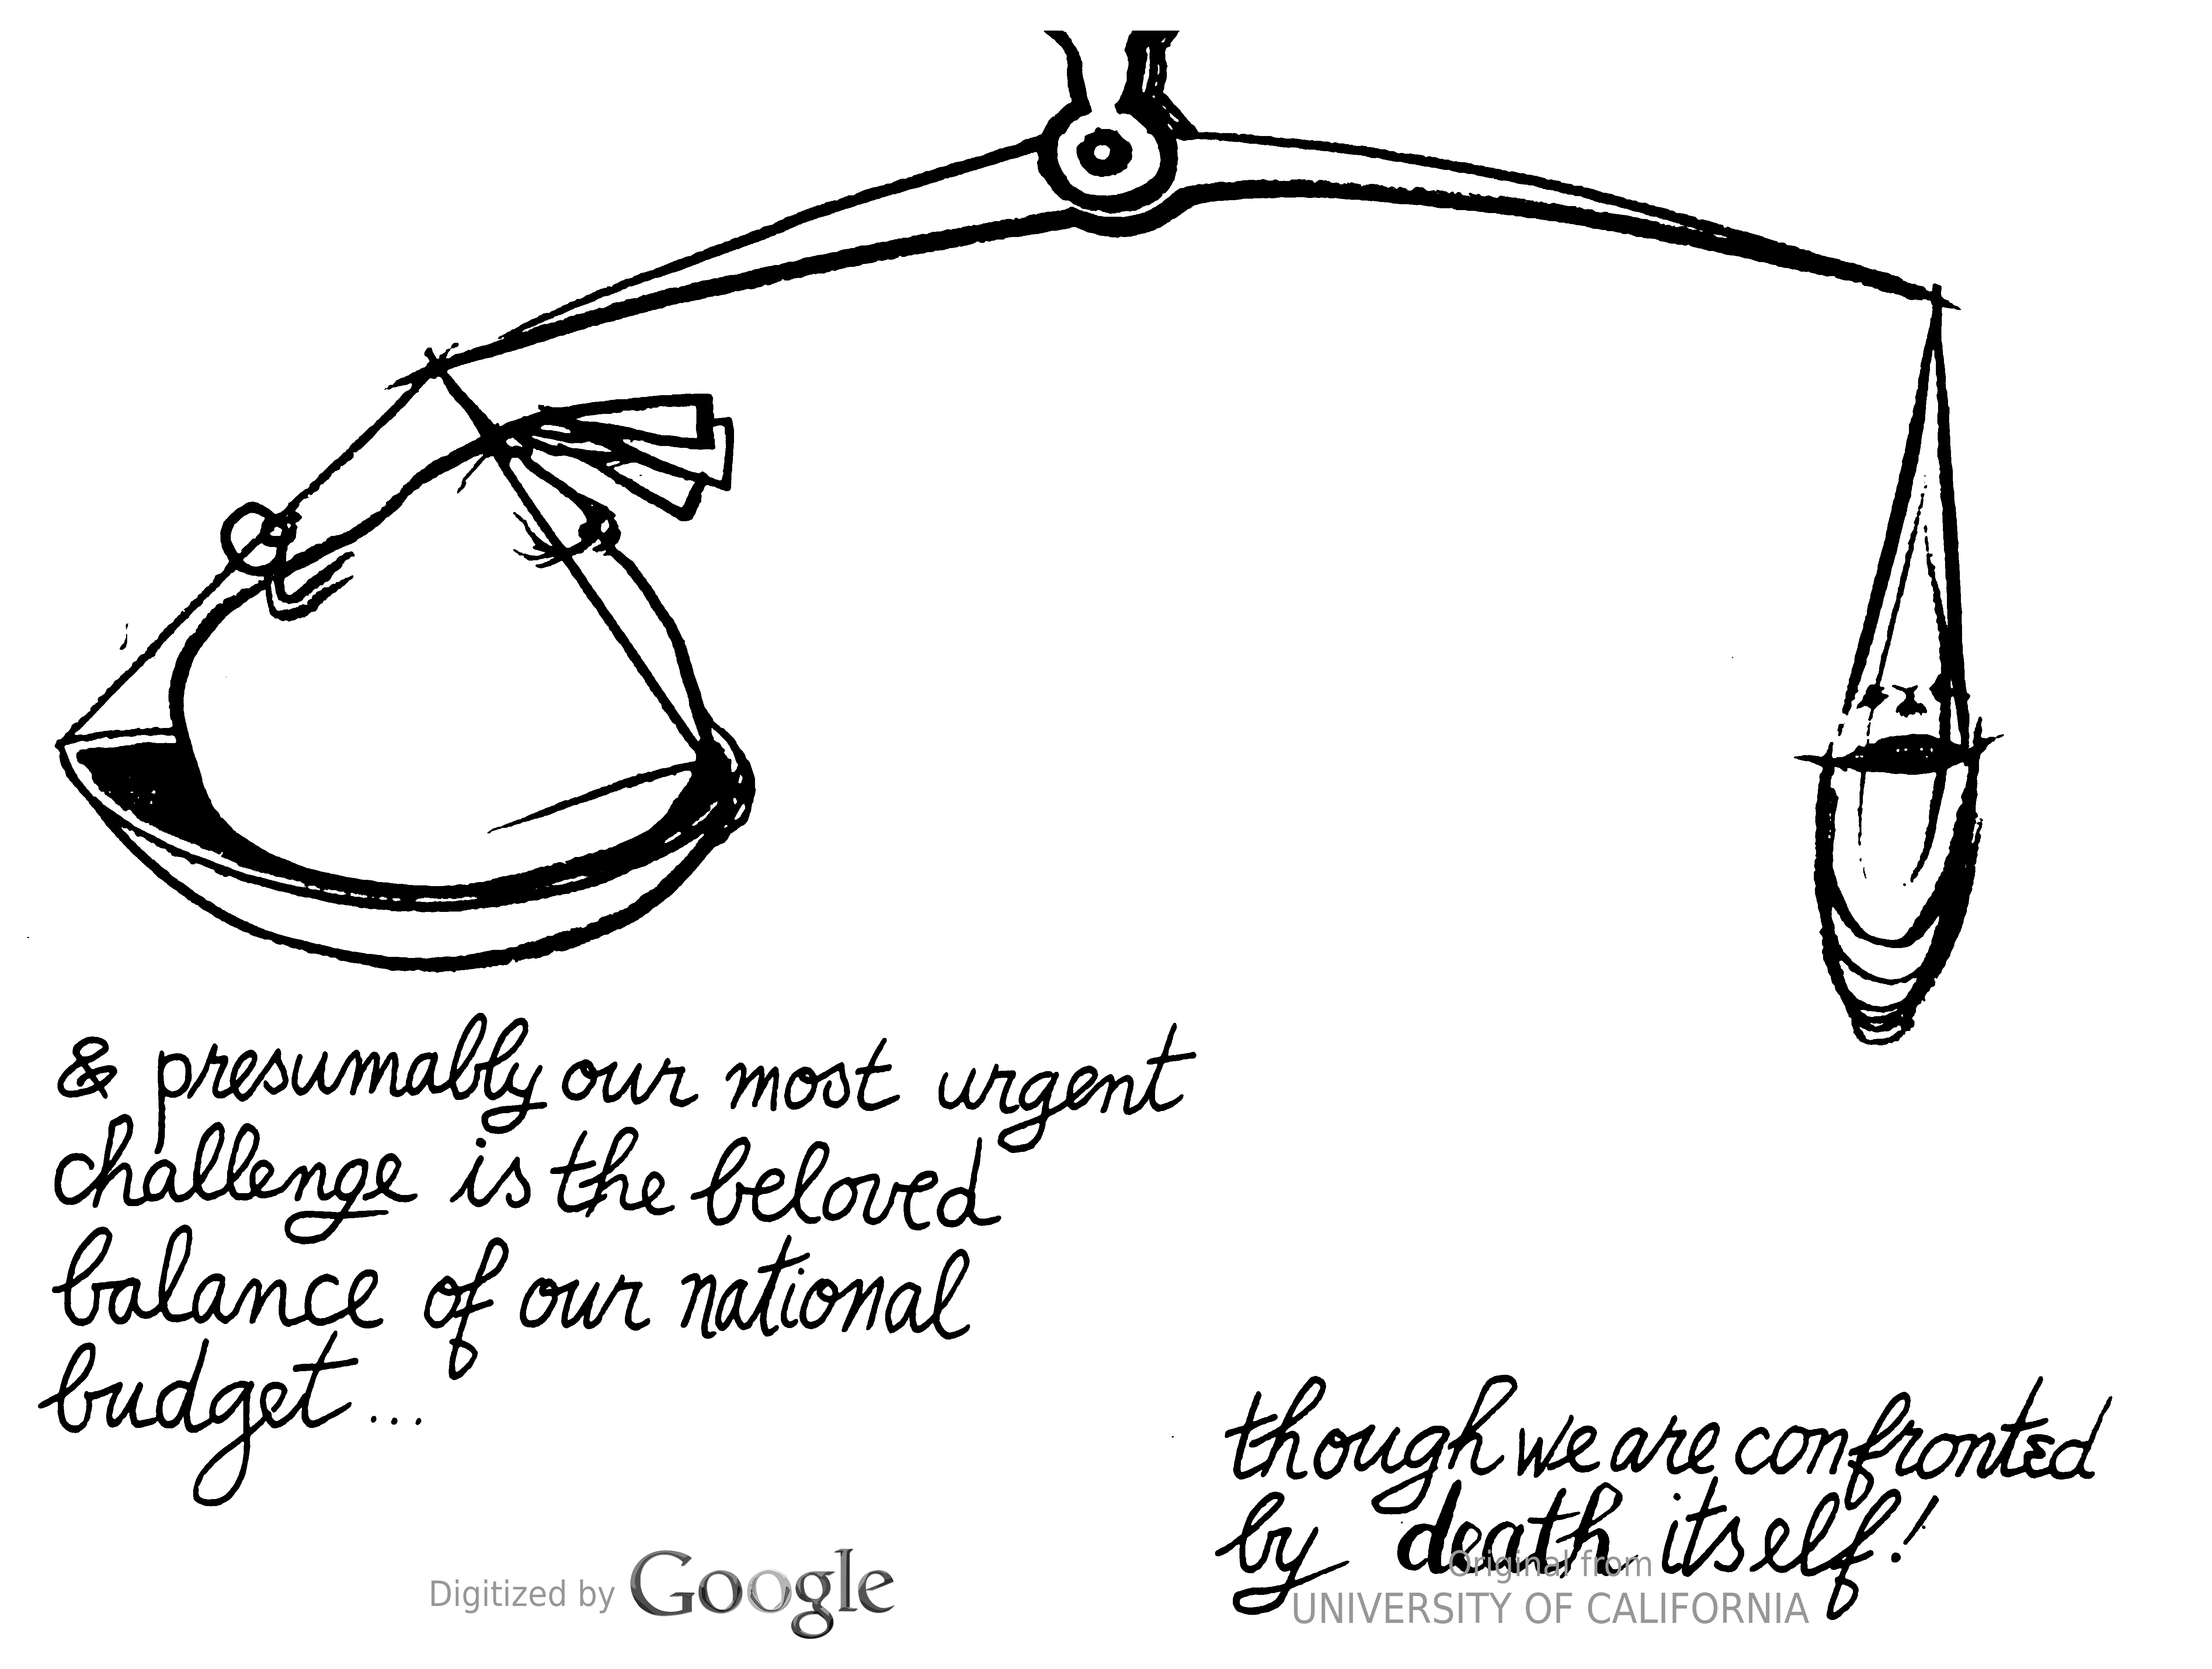 & presumably our most urgent
challenge is the beloved
balance of our national
budget...
though we are confronted
by death itself!
Digitized by Google
Original from
UNIVERSITY OF CALIFORNIA